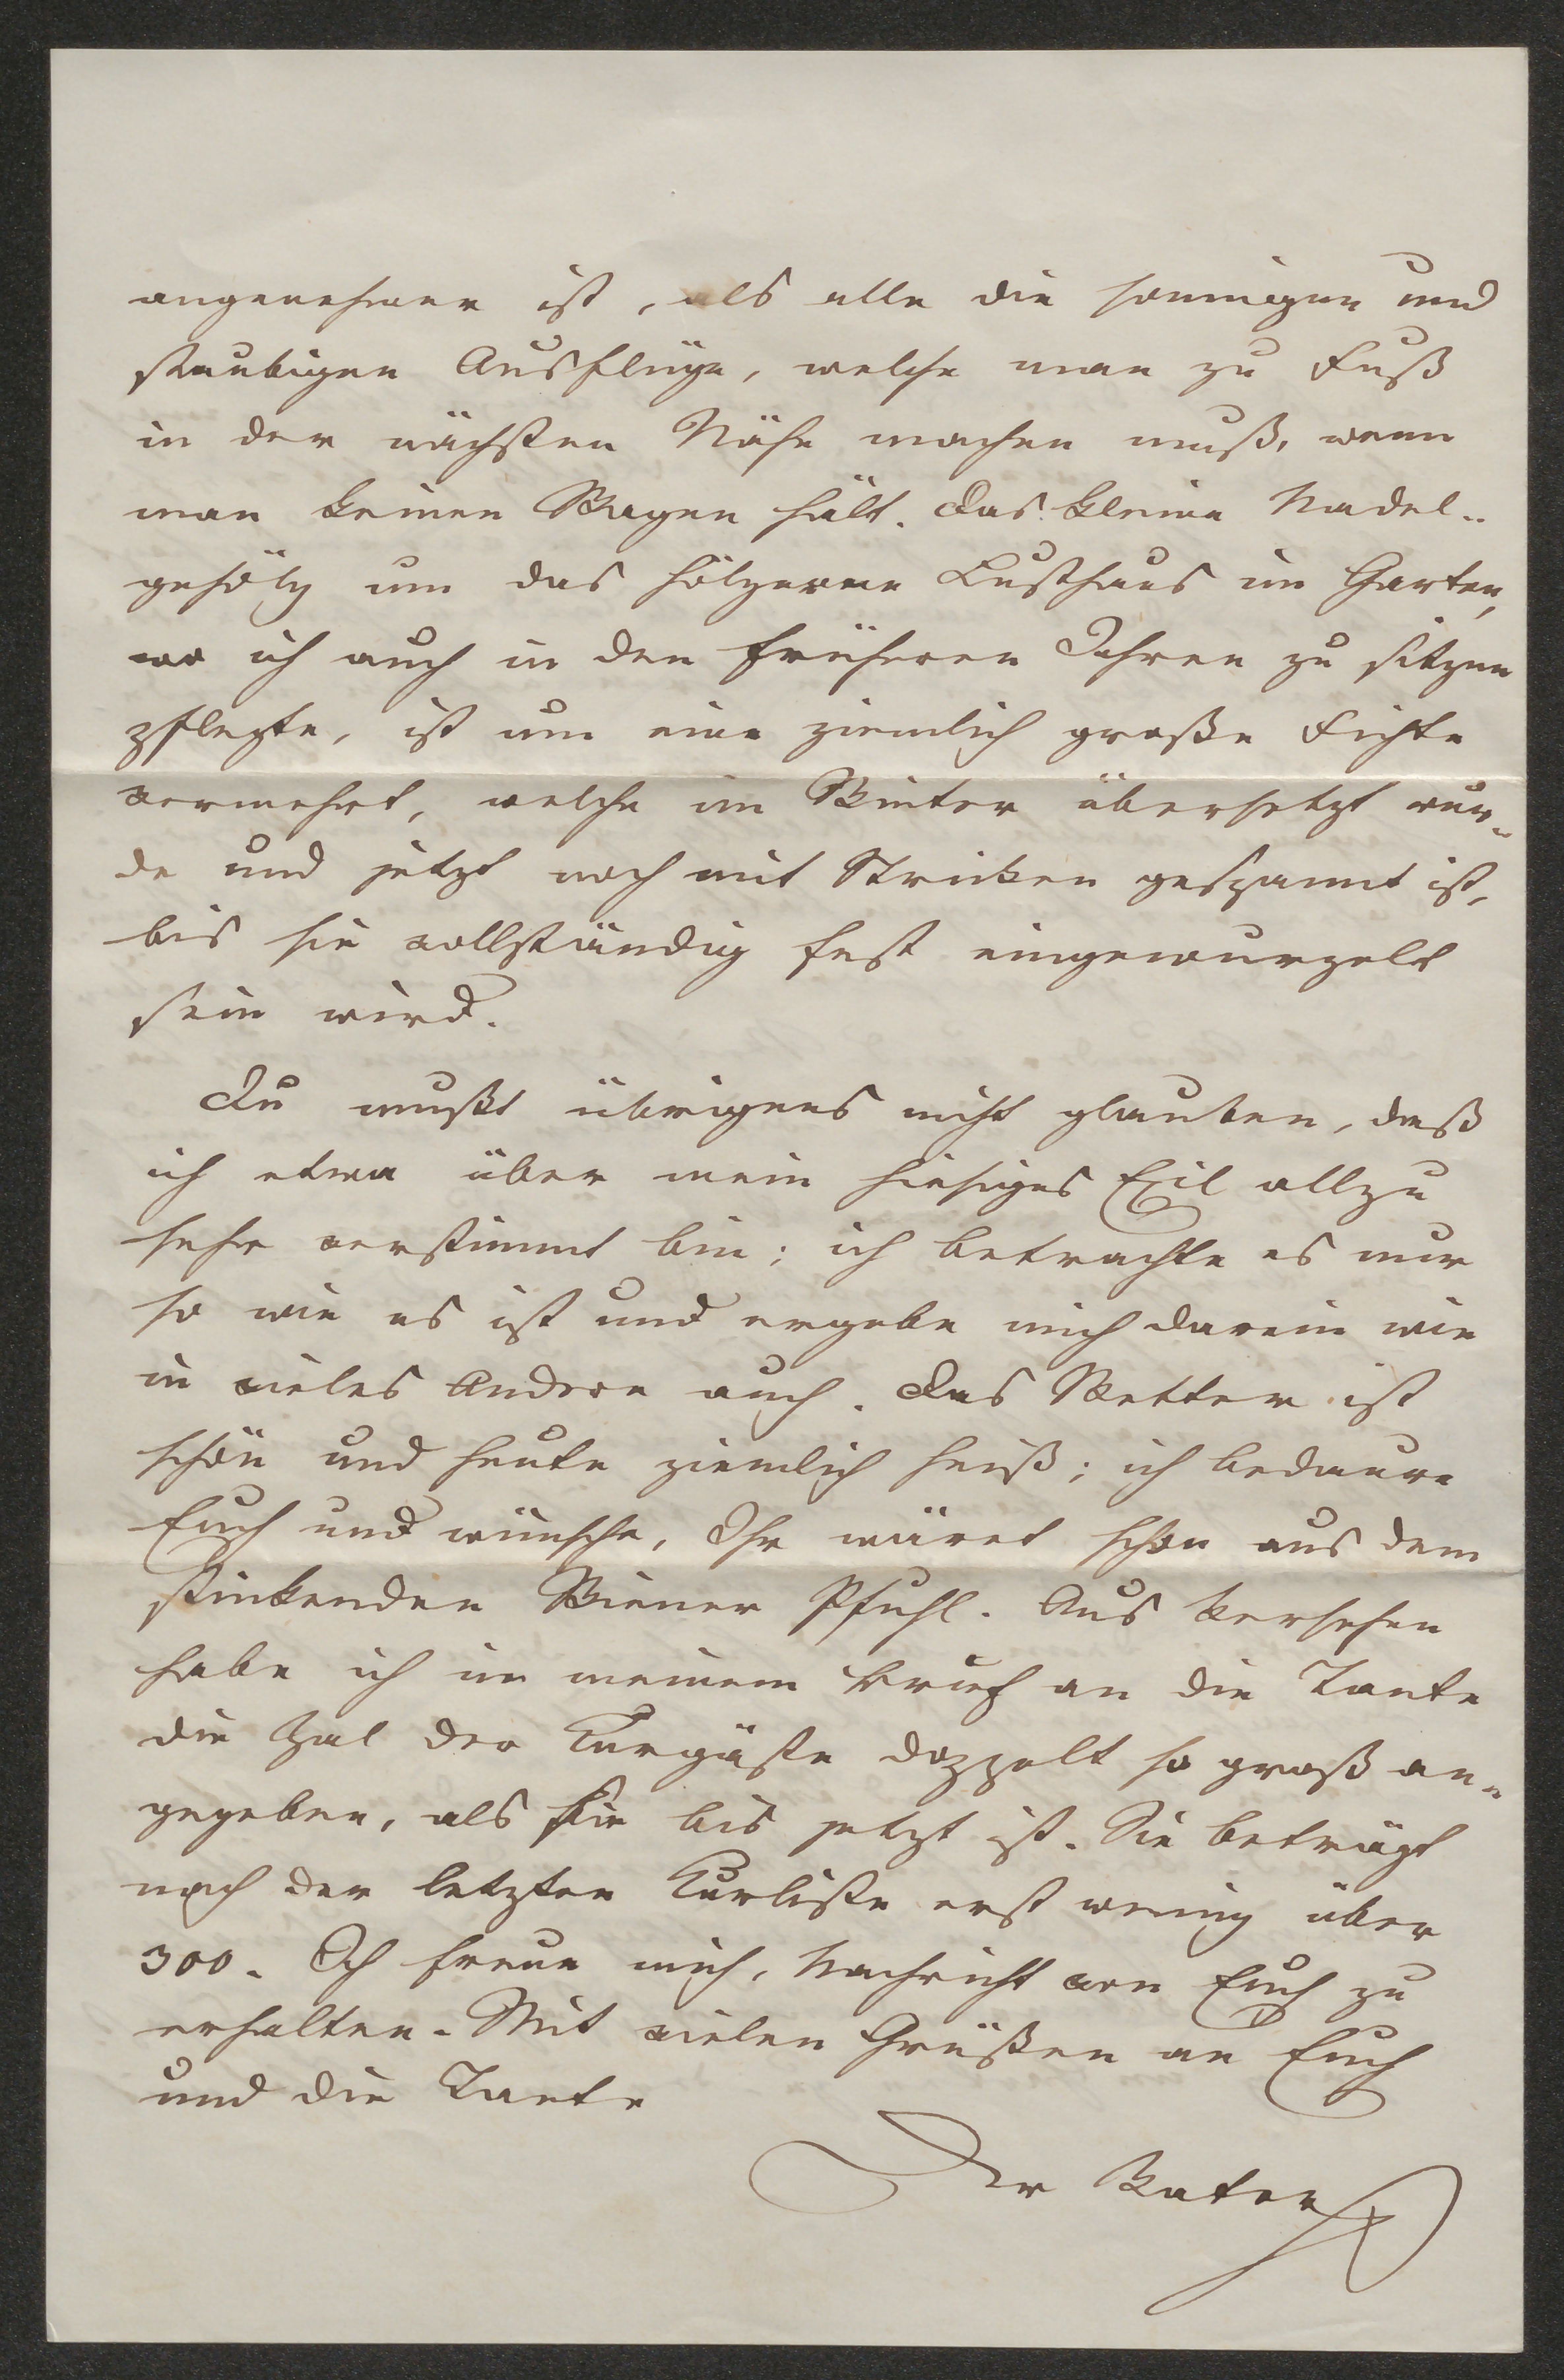 angenehmer ist, als alle die sonnigen und
staubigen Ausflüge, welche man zu Fuß
in der nächsten Nähe machen muß, wenn
man keinen Wagen hält. Das kleine Nadel-
gehölz um das hölzerne Lusthaus im Garten,
wo ich auch in den früheren Jahren zu sitzen
pflegte, ist um eine ziemlich große Fichte
vermehrt, welche im Winter übersetzt wur-
de und jetzt noch mit Stricken gespannt ist,
bis sie vollständig fest eingewurzelt
sein wird.
Du mußt übrigens nicht glauben, daß
ich etwa über mein hiesiges Exil allzu
sehr verstimmt bin; ich betrachte es nur
so wie es ist und ergebe mich darein wie
in vieles Andere auch. Das Wetter ist
schön und heute ziemlich heiß; ich bedaure
Euch und wünsche, Ihr wäret schon aus dem
stinkenden Wiener Pfuhl. Aus Versehen
habe ich in meinem Brief an die Tante
die Zal der Kurgäste doppelt so groß an-
gegeben, als sie bis jetzt ist. Sie beträgt
nach der letzten Kurliste erst wenig über
300. Ich freue mich, Nachricht von Euch zu
erhalten. Mit vielen Grüßen an Euch
und die Tante
Der Vater